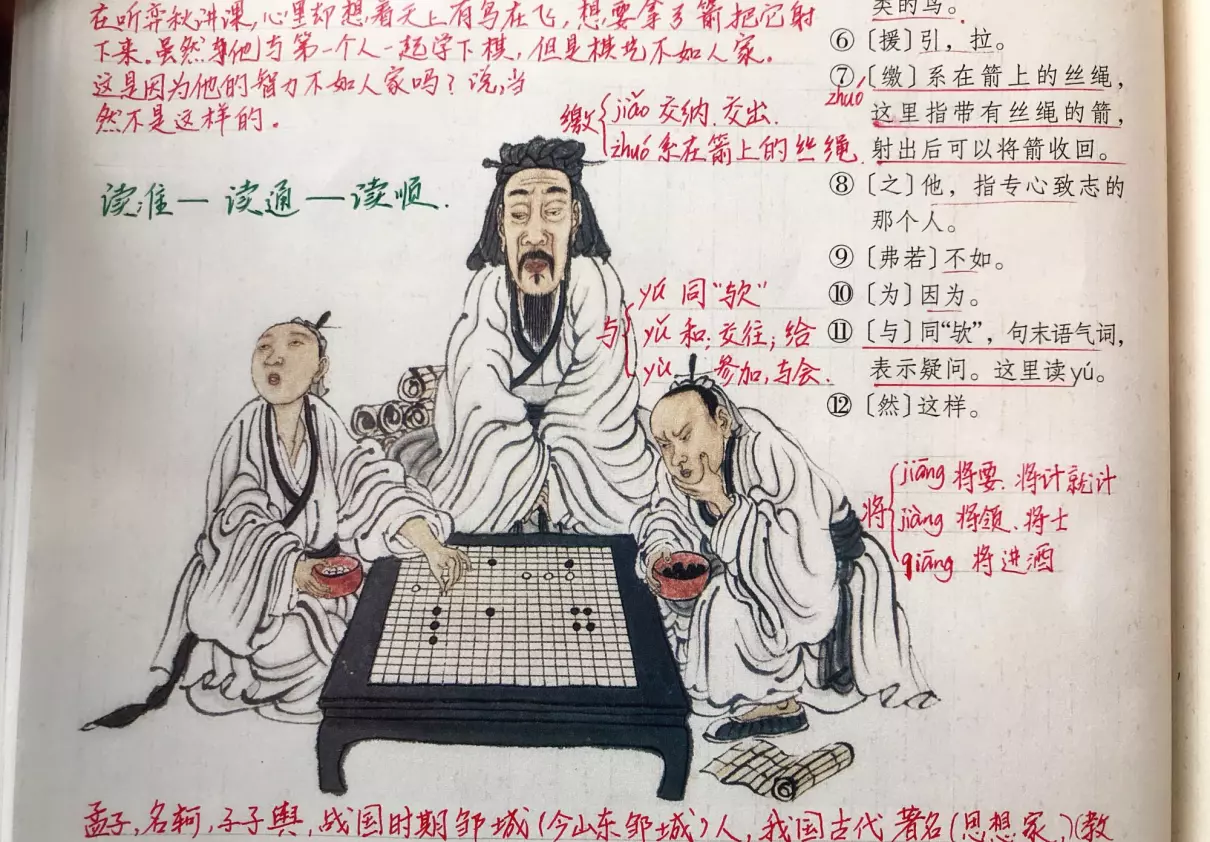 在听弈秋讲课,心里却想着天上有鸟在飞,想要拿了箭把它射
下来。虽然他与第一个人一起学下棋,但是棋艺不如人家。
这是因为他的智力不如人家吗?说,当
然不是这样的。
读准—读通—读顺.
缴
jiǎo 交纳.交出.
zhuó 系在箭上的丝绳.
与
yú 同"欤"
yǔ 和;交往;给
yù — 参加,与会.
类的鸟。
⑥〔援〕引,拉。
⑦〔缴〕系在箭上的丝绳,
zhuó
这里指带有丝绳的箭,
射出后可以将箭收回。
⑧〔之〕他,指专心致志的
那个人。
⑨〔弗若〕不如。
⑩〔为〕因为。
⑪〔与〕同“欤”,句末语气词,
表示疑问。这里读yú。
⑫〔然〕这样。
将
jiāng 将要.将计就计
jiàng 将领、将士
qiāng 将进酒
孟子,名轲,字子舆,战国时期邹城(今山东邹城)人,我国古代著名(思想家、)(教